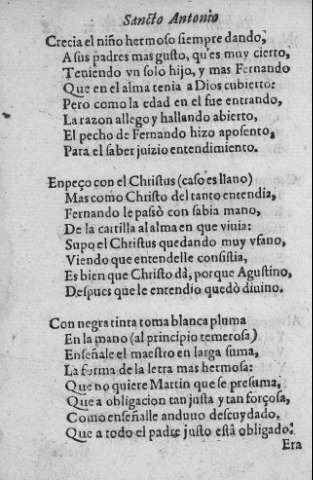 Sancto Antonio
Crecia el niño hermoso siempre dando,
A sus padres mas gusto, qu'es muy cierto,
Teniendo vn solo hijo, y mas Fernando
Que en el alma tenia a Dios cubierto:
Pero como la edad en el fue entrando,
La razon allego y hallando abierto,
El pecho de Fernando hizo aposento,
Para el saber juizio entendimiento.
Enpeço con el Christus (caso es llano)
Mas como Christo del tanto entendia,
Fernando le passò con sabia mano,
De la cartilla al alma en que viuia:
Supo el Christus quedando muy vfano,
Viendo que entendelle consistia,
Es bien que Christo dà, porque Agustino,
Despues que le entendio quedò diuino.
Con negra tinta toma blanca pluma
En la mano (al principio temerosa)
Enseñale el maestro en larga suma,
La forma de la letra mas hermosa:
Que no quiere Martin que se presuma,
Que a obligacion tan justa y tan forçosa,
Como enseñalle anduuo descuydado,
Que a todo el padre justo està obligado:
Era